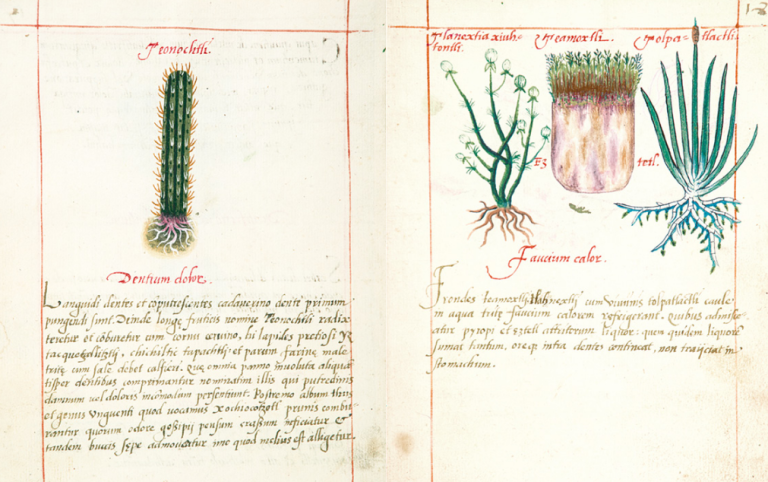 Teonochtli.
Dentium dolor.
Languidi dentes et coputrescentes cadaverino dente primum
pungendi sunt. Deinde longe fruticis nomine Teonochtli radix
teretur et coburetur cum cornu cervino, hi lapides pretiosi
chichiltic tapachtli et parum farine male
trite cum sale debet calfieri. Que omnia panno involuta aliqua
tisper dentibus compremantur nominatim illis qui putredinis
damnum vel doloris incomodum persentiunt. Postremo album thus
et genus Unguenti quod vocamus xochiocotzotl prunis combu
rantur quorum odore gosipij pensum crassum inficiatur &
tandem bucis sepe admoveatur imo quod melius est alligetur.
Tlanextia xiuh=
tontli.
Teamoxtli.
Tolpa=
tlactli
Ez
tetl.
Faucium calor.
Frondes teamoxtli, cum tolpatlactli caule
in aqua trite faucium calorem refrigerant. quibus admisce
atur pyropi et Eztetl attritorum liquor: quem quidem liquorem
sumat tantum, ore intra dentes contineat, non traijciat in
stomachum.